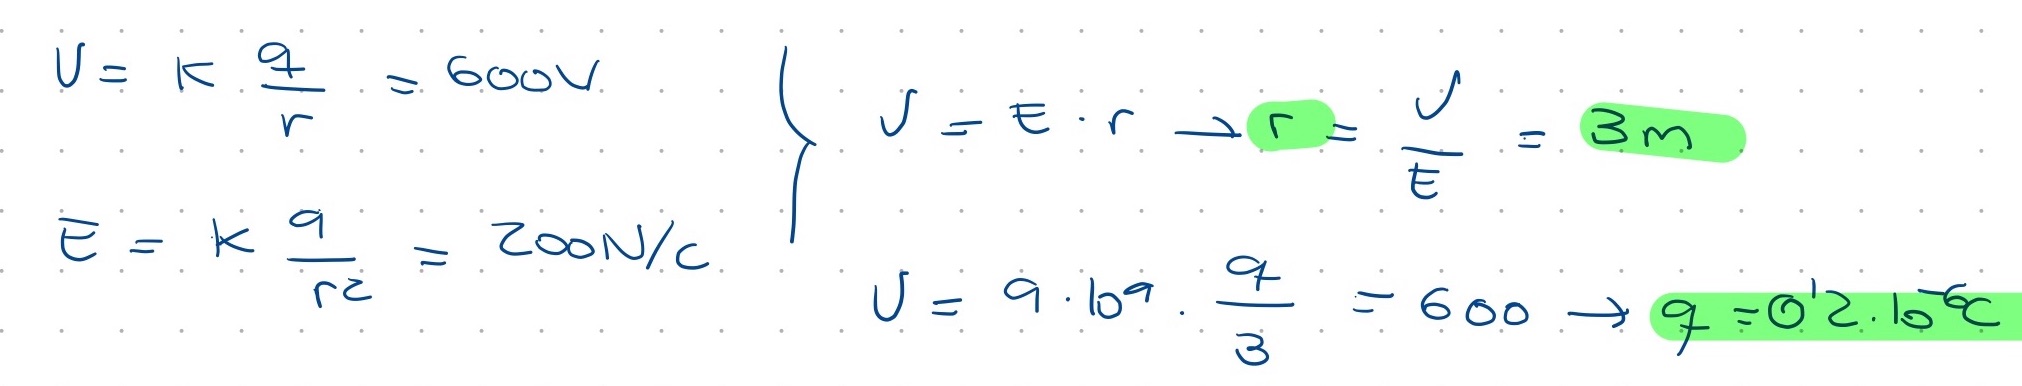 V = K q/r = 600V
E = K q/r² = 200N/C
V = E · r → r = V/E = 3m
V = 9·10⁹ · q/3 = 600 → q = 0'2·10⁻⁶C